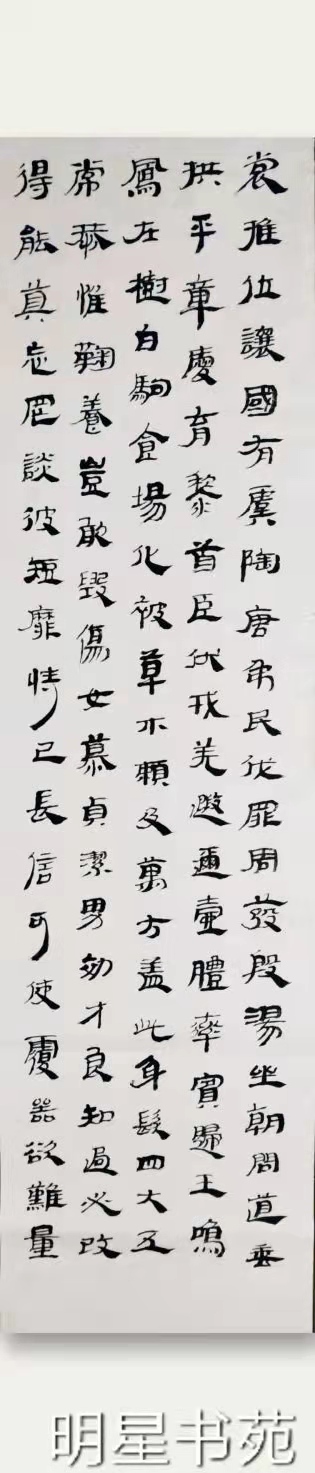 裳推位讓國有虞陶唐弔民伐罪周發殷湯坐朝問道垂
拱平章愛育黎首臣伏戎羌遐邇壹體率賓歸王鳴
鳳在樹白駒食場化被草木賴及萬方盖此身髮四大五
常恭惟鞠養豈敢毀傷女慕貞潔男効才良知過必改
得能莫忘罔談彼短靡恃己長信可使覆器欲難量
明星书苑